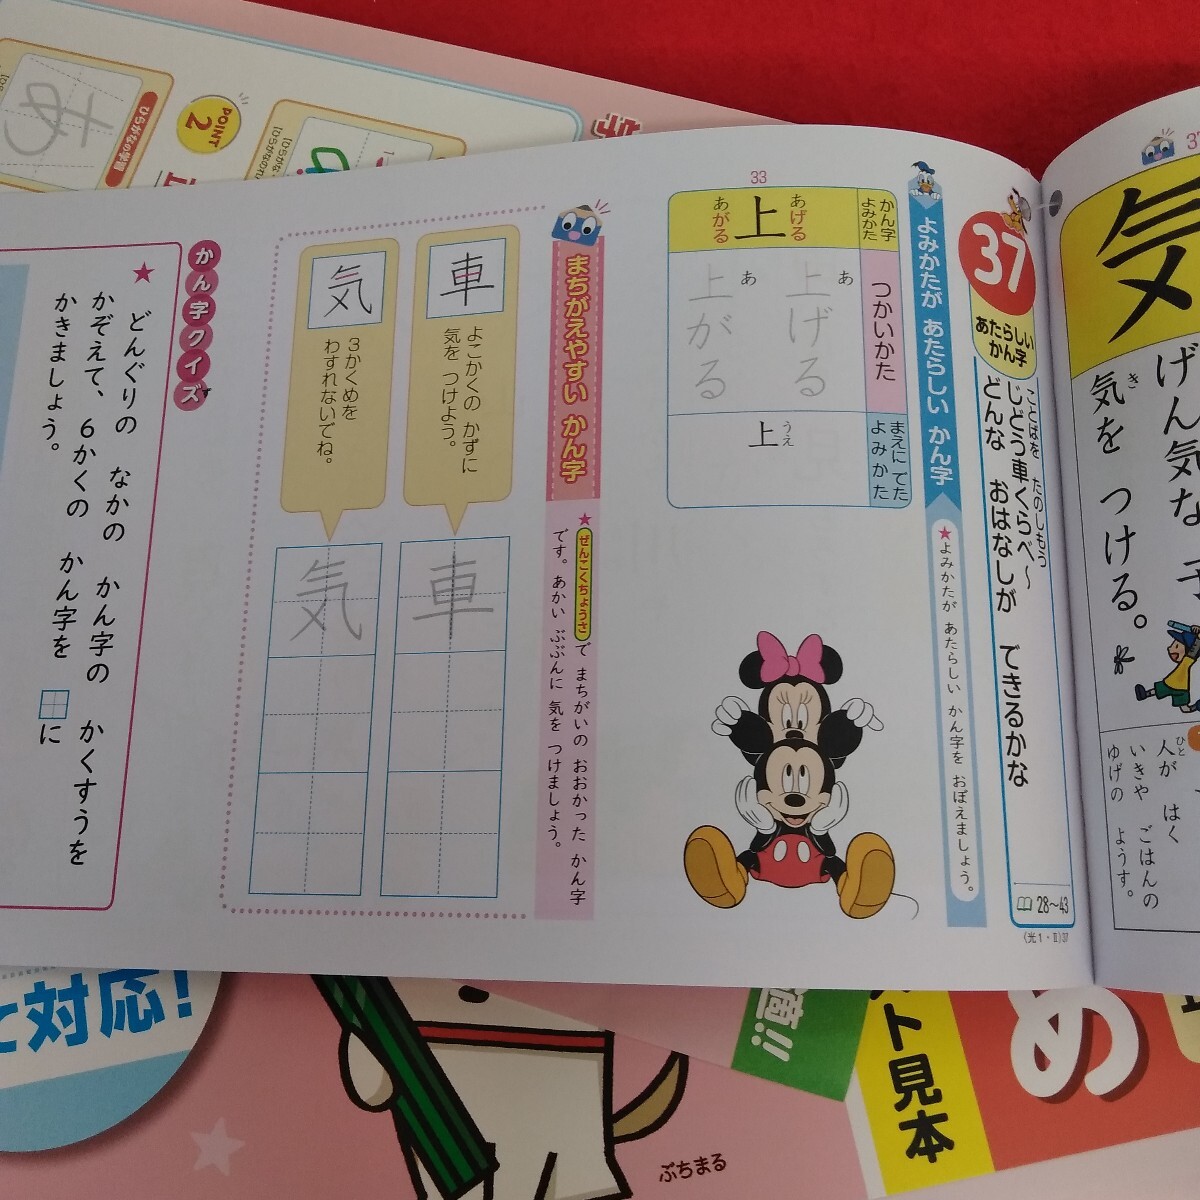 37
気
げん気な 子
気を つける。
き
人が はく
ひと
いきや ごはんの
ゆげの ようす。
37
あたらしい
かん字
ことばを たのしもう
じどう車くらべ～
どんな おはなしが できるかな
28～43
〈光1・Ⅱ〉37
よみかたが あたらしい かん字
★よみかたが あたらしい かん字を おぼえましょう。
33
かん字
よみかた
あげる
上
あがる
つかいかた
あ
上げる
あ
上がる
まえに でた
よみかた
うえ
上
まちがえやすい かん字
★ぜんこくちょうさで まちがいの おおかった かん字
です。あかい ぶぶんに 気を つけましょう。
車
よこかくの かずに
気を つけよう。
車
気
3かくめを
わすれないでね。
気
かん字クイズ
★
どんぐりの なかの かん字の かくすうを
かぞえて、6かくの かん字を □に
かきましょう。
ひらがなの学習
あ
POINT
2
と対応！
適!!
スト見本
め
ぷちまる